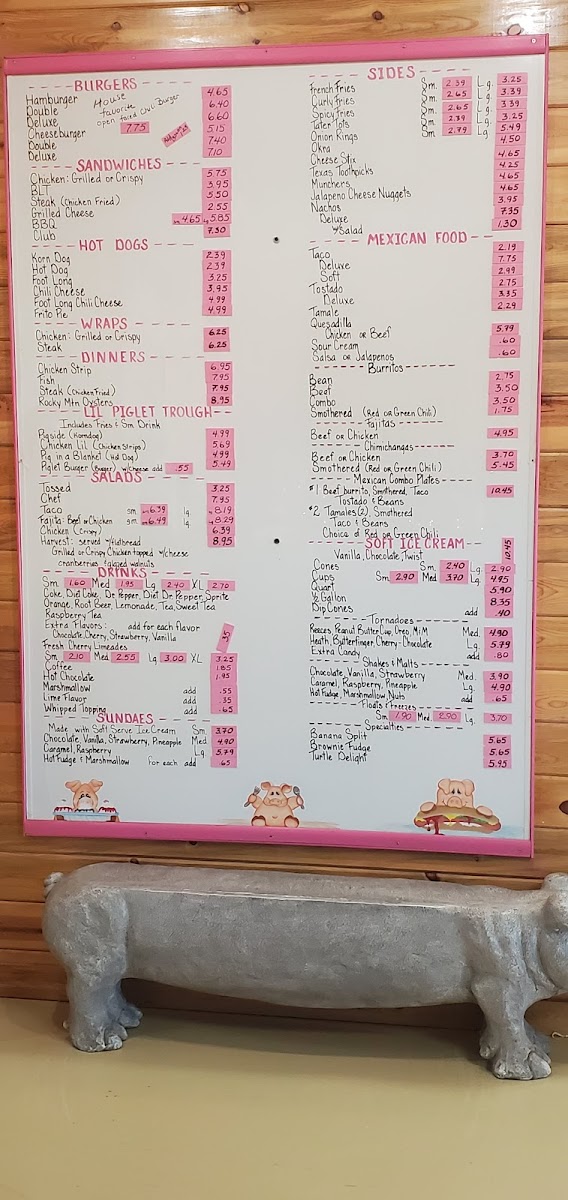 BURGERS
Hamburger 4.65
Double 6.40
Deluxe 6.60
House favorite open faced Chili Burger 7.75
Cheeseburger 5.15
Double 7.40
Deluxe 7.10
SANDWICHES
Chicken: Grilled or Crispy 5.75
BLT 3.95
Steak (Chicken Fried) 5.50
Grilled Cheese 2.55
BBQ 4.65 5.85
Club 7.30
HOT DOGS
Korn Dog 2.39
Hot Dog 2.39
Foot Long 3.25
Chili Cheese 3.95
Foot Long Chili Cheese 4.99
Frito Pie 4.99
WRAPS
Chicken: Grilled or Crispy 6.25
Steak 6.25
DINNERS
Chicken Strip 6.95
Fish 7.95
Steak (Chicken Fried) 7.95
Rocky Mtn Oysters 8.95
LIL PIGLET TROUGH
Includes Fries & Sm. Drink
Pigside (Korndog) 4.99
Chicken Lil (Chicken Strips) 5.69
Pig in a Blanket (Hot Dog) 4.99
Piglet Burger (Burger) w/cheese add .55 5.49
SALADS
Tossed 3.25
Chef 7.95
Taco sm 6.39 lg 8.19
Fajita: Beef or Chicken sm 6.49 lg 8.29
Chicken (Crispy) 6.39
Harvest: served w/flatbread 8.95
Grilled or Crispy Chicken topped w/cheese
cranberries & glazed walnuts
DRINKS
Sm 1.60 Med 1.95 Lg 2.40 XL 2.70
Coke, Diet Coke, Dr. Pepper, Diet Dr. Pepper, Sprite
Orange, Root Beer, Lemonade, Tea, Sweet Tea
Raspberry Tea
Extra Flavors: add for each flavor .35
Chocolate, Cherry, Strawberry, Vanilla
Fresh Cherry Limeades
Sm 2.10 Med 2.55 Lg 3.00 XL 3.25
Coffee 1.85
Hot Chocolate 1.95
Marshmallow add .55
Lime Flavor add .35
Whipped Topping add .65
SUNDAES
Made with Soft Serve Ice Cream Sm. 3.70
Chocolate, Vanilla, Strawberry, Pineapple Med 4.90
Caramel, Raspberry Lg 5.79
Hot Fudge & Marshmallow for each add .65
SIDES
French Fries Sm. 2.39 Lg. 3.25
Curly Fries Sm 2.65 Lg 3.39
Spicy Fries Sm. 2.65 Lg. 3.39
Tater Tots Sm 2.39 Lg. 3.25
Onion Rings Sm 2.79 Lg 5.49
Okra 4.50
Cheese Stix 4.65
Texas Toothpicks 4.25
Munchers 4.65
Jalapeno Cheese Nuggets 4.65
Nachos 3.95
Deluxe 7.35
w/Salad 1.30
MEXICAN FOOD
Taco 2.19
Deluxe 7.75
Soft 2.99
Tostado 2.75
Deluxe 3.35
Tamale 2.29
Quesadilla
Chicken or Beef 5.79
Sour Cream .60
Salsa or Jalapenos .60
Burritos
Bean 2.75
Beef 3.50
Combo 3.50
Smothered (Red or Green Chili) 1.75
Fajitas
Beef or Chicken 4.95
Chimichangas
Beef or Chicken 3.70
Smothered (Red or Green Chili) 5.45
Mexican Combo Plates
#1 Beef burrito, Smothered, Taco 10.45
Tostado & Beans
#2 Tamales (2), Smothered
Taco & Beans
Choice of Red or Green Chili 10.45
SOFT ICE CREAM
Vanilla, Chocolate, Twist
Cones Sm. 2.40 Lg. 2.90
Cups Sm 2.90 Med 3.70 Lg 4.95
Quart 5.90
½ Gallon 8.35
Dip Cones add .40
Tornadoes
Reeces, Peanut Butter Cup, Oreo, M&M Med. 4.90
Heath, Butterfinger, Cherry-Chocolate Lg. 5.79
Extra Candy add .80
Shakes & Malts
Chocolate, Vanilla, Strawberry Med. 3.90
Caramel, Raspberry, Pineapple Lg. 4.90
Hot Fudge, Marshmallow, Nuts add .65
Floats & Freezes
Sm 1.90 Med. 2.90 Lg. 3.70
Specialties
Banana Split 5.65
Brownie Fudge 5.65
Turtle Delight 5.95